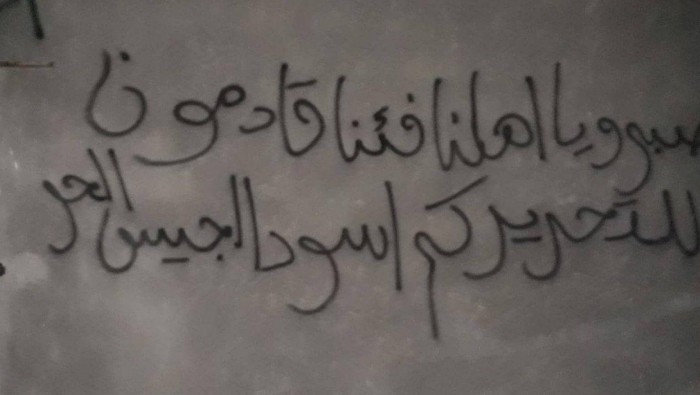 صبرو يا اهلنا فئنا قادمون
للتحريركم اسود الجيس الحر